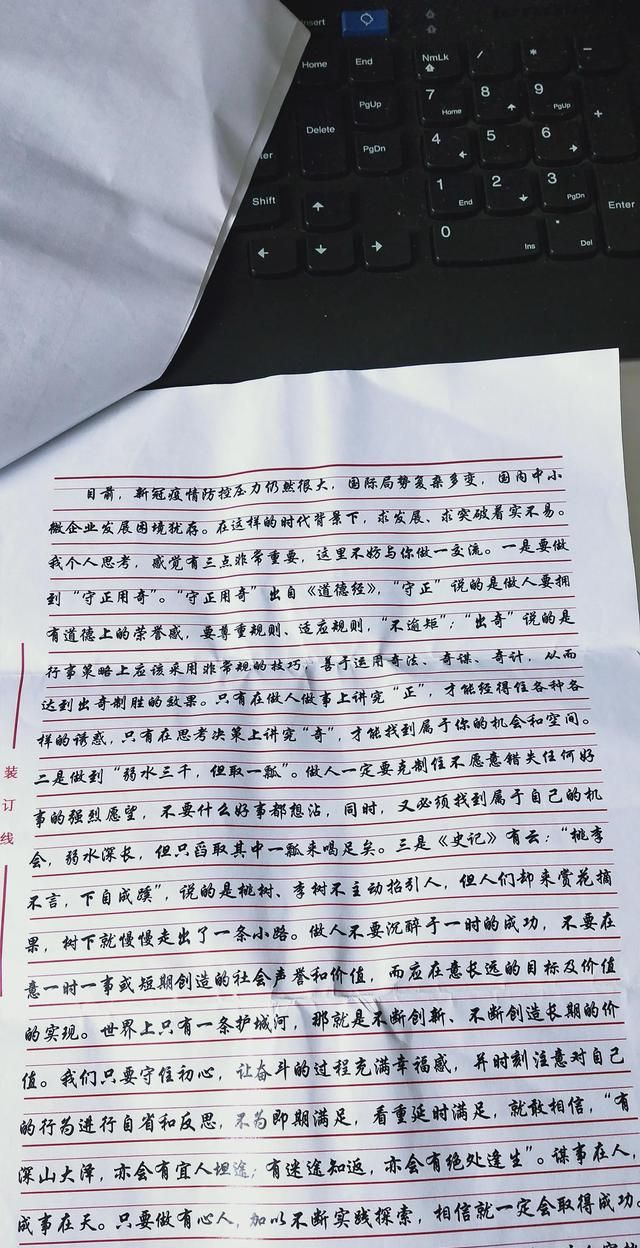 Insert
Home End NmLk / * −
PgUp 7 Home 8 9 PgUp +
Delete PgDn 4 5 6
Shift 1 End 2 3 PgDn Enter
0 Ins . Del
目前，新冠疫情防控压力仍然很大，国际局势复杂多变，国内中小
微企业发展困境犹存。在这样的时代背景下，求发展、求突破着实不易。
我个人思考，感觉有三点非常重要，这里不妨与你做一交流。一是要做
到“守正用奇”。“守正用奇”出自《道德经》，“守正”说的是做人要拥
有道德上的荣誉感，要尊重规则、适应规则，“不逾矩”；“出奇”说的是
行事策略上应该采用非常规的技巧，善于运用奇法、奇谋、奇计，从而
达到出奇制胜的效果。只有在做人做事上讲究“正”，才能经得住各种各
样的诱惑，只有在思考决策上讲究“奇”，才能找到属于你的机会和空间。
二是做到“弱水三千，但取一瓢”。做人一定要克制住不愿意错失任何好
事的强烈愿望，不要什么好事都想沾，同时，又必须找到属于自己的机
会，弱水深长，但只舀取其中一瓢来喝足矣。三是《史记》有云：“桃李
不言，下自成蹊”，说的是桃树、李树不主动招引人，但人们却来赏花摘
果，树下就慢慢走出了一条小路。做人不要沉醉于一时的成功，不要在
意一时一事或短期创造的社会声誉和价值，而应在意长远的目标及价值
的实现。世界上只有一条护城河，那就是不断创新、不断创造长期的价
值。我们只要守住初心，让奋斗的过程充满幸福感，并时刻注意对自己
的行为进行自省和反思，不为即期满足，看重延时满足，就敢相信，“有
深山大泽，亦会有宜人坦途；有迷途知返，亦会有绝处逢生”。谋事在人，
成事在天。只要做有心人，加以不断实践探索，相信就一定会取得成功。
装
订
线